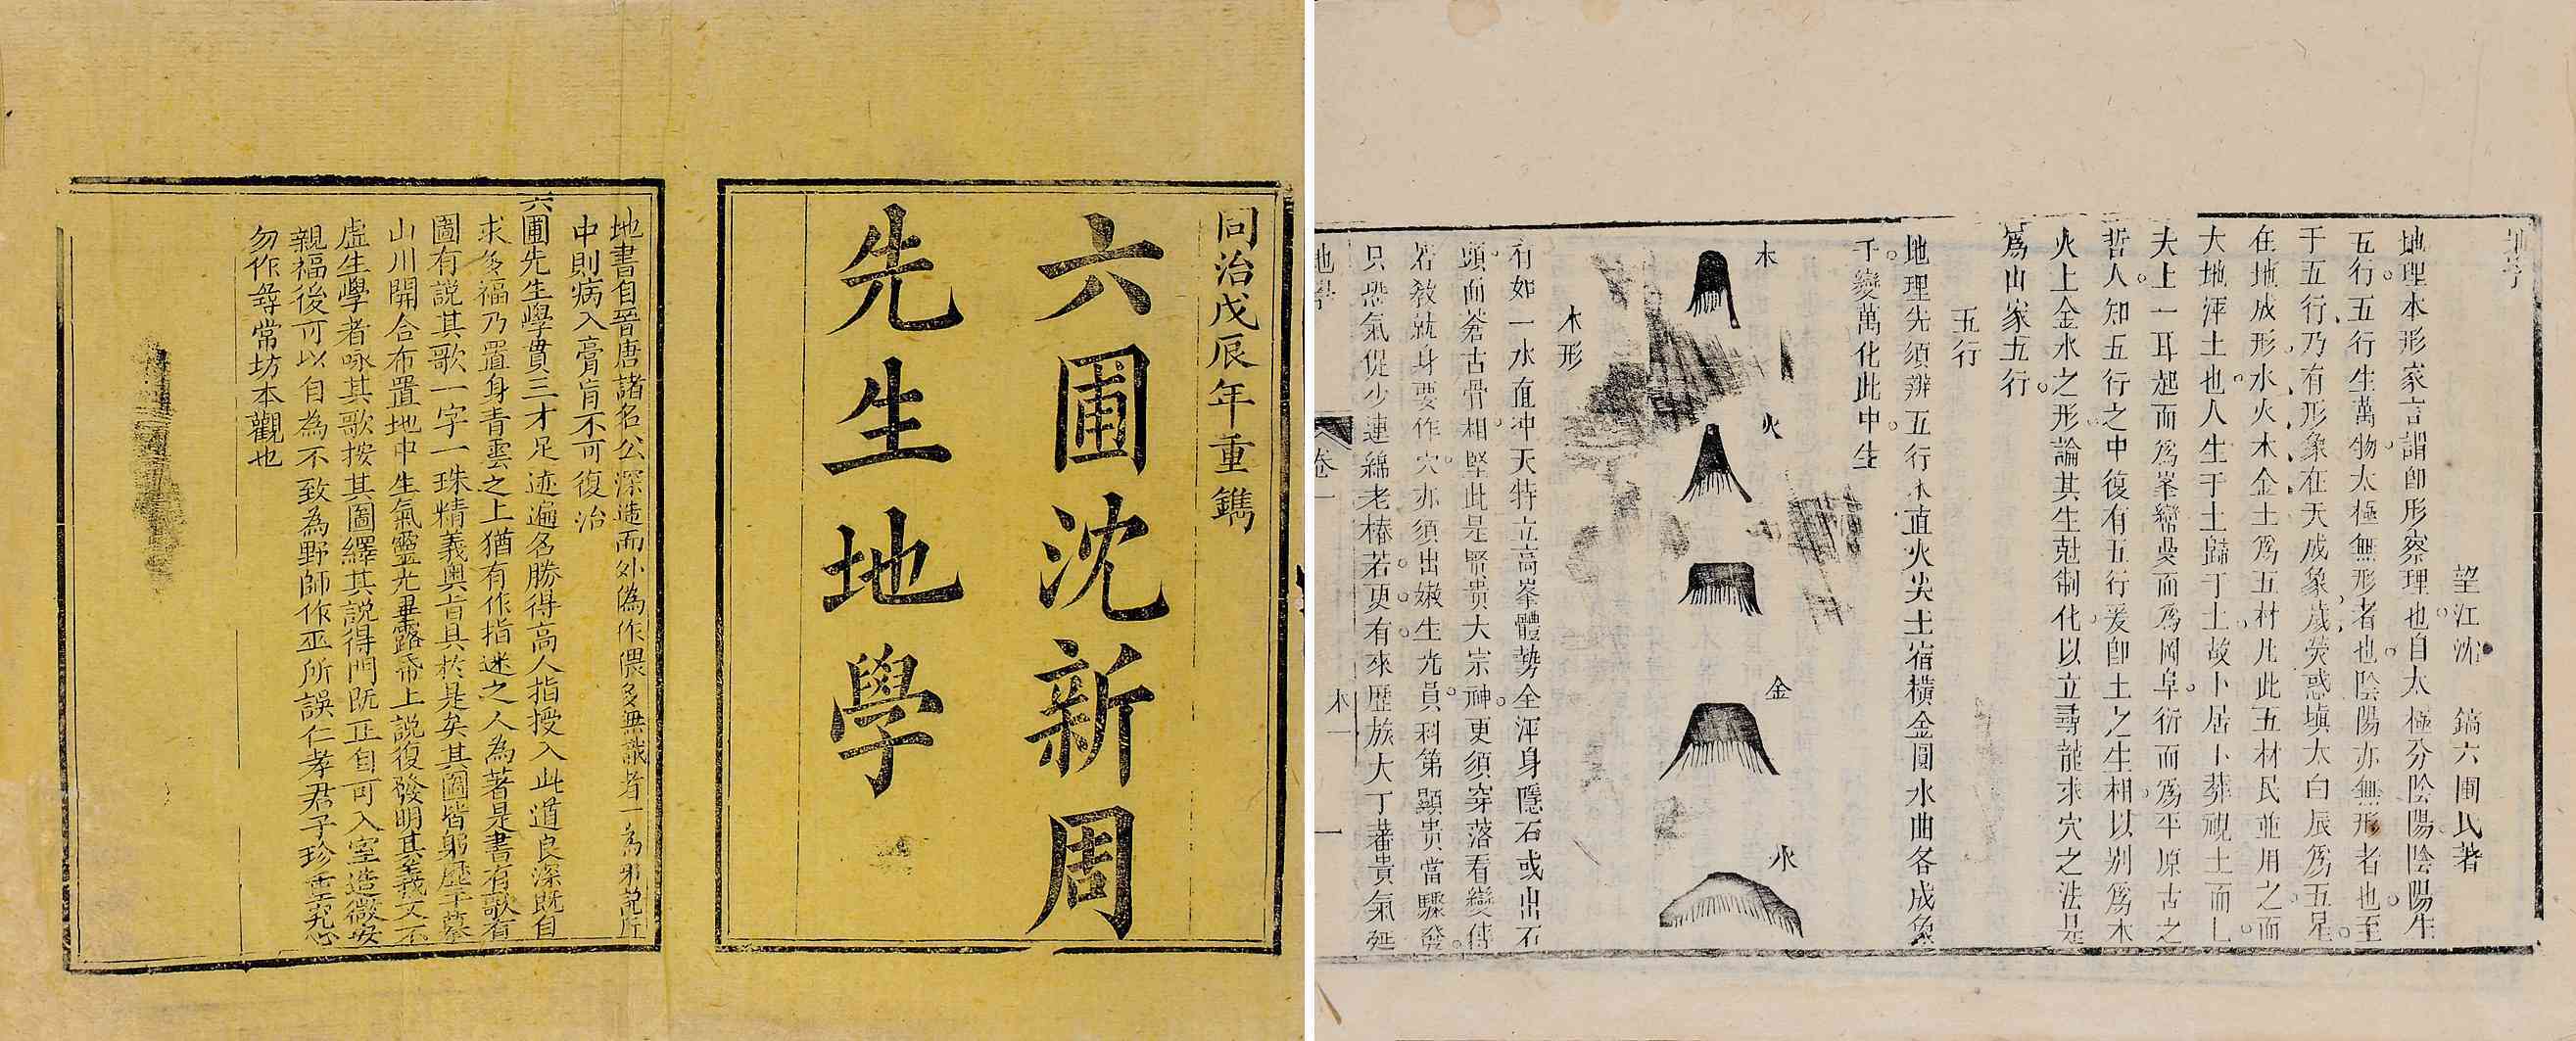 同治戊辰年重鐫
六圃沈新周
先生地學
地書自晉唐諸名公深造而外偽作偎多無識者一為邪說所
中則病入膏肓不可復治
六圃先生學貫三才足迹遍名勝得高人指授入此道良深既自
求多福乃置身青雲之上猶有作指迷之人為著是書有歌有
圖有說其歌一字一珠精義奧旨具於是矣其圖皆躬歷千墓
山川開合布置地中生氣靈光畢露帋上說復發明其義文不
虛生學者咏其歌按其圖繹其說得門既正自可入室造微安
親福後可以自為不致為野師作巫所誤仁孝君子珍重究心
勿作尋常坊本觀也
地學
望江沈　鎬六圃氏著
地理本形家言謂即形察理也自太極分陰陽陰陽生
五行五行生萬物太極無形者也陰陽亦無形者也至
于五行乃有形象在天成象歲熒惑塡太白辰爲五星
在地成形水火木金土爲五材凡此五材民並用之而
大地渾土也人生于土歸于土故卜居卜葬視土而已
夫土一耳起而爲峯巒曼而爲岡阜衍而爲平原古之
哲人知五行之中復有五行爰卽土之生相以别爲木
火土金水之形論其生尅制化以立尋龍求穴之法是
爲山家五行
五行
地理先須辨五行木直火尖土宿橫金圓水曲各成象
千變萬化此中生
木
火
金
水
木形
有如一木直冲天特立高峯體勢全渾身隱石或出石
頭面蒼古骨相堅此是賢貴大宗神更須穿落看變傳
若敎就身要作穴亦須出嫩生光員科第顯貴當驟發
只恐氣促少連綿老椿若更有來歷族大丁蕃貴氣延
地學
卷一
木一
一